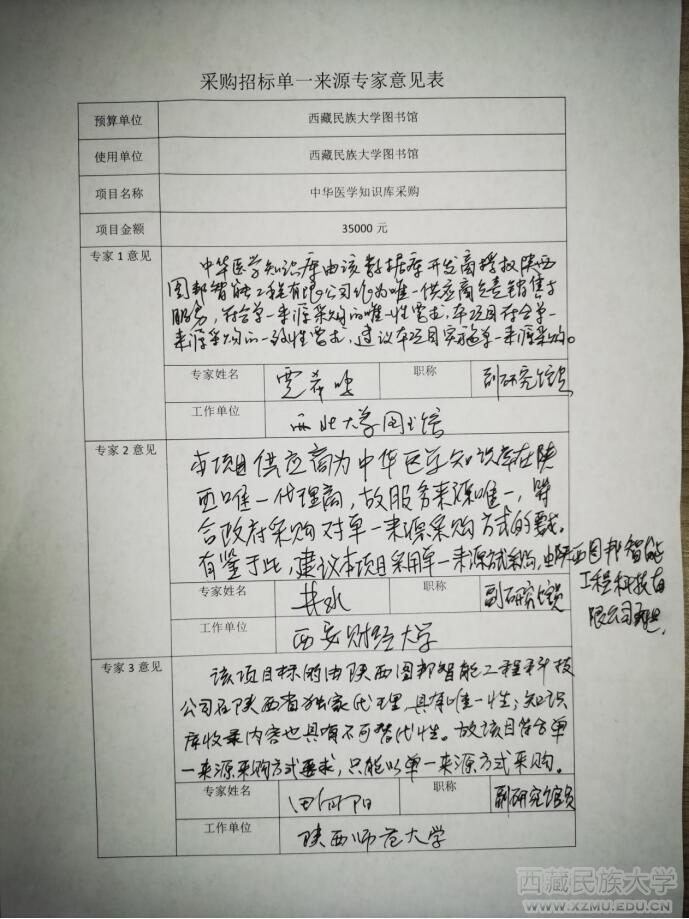 采购招标单一来源专家意见表
预算单位 西藏民族大学图书馆
使用单位 西藏民族大学图书馆
项目名称 中华医学知识库采购
项目金额 35000 元
专家 1 意见
中华医学知识库由该数据库开发商授权陕西
图邦智能工程有限公司作为唯一供应商负责销售与
服务，符合单一来源采购的唯一性要求，本项目符合单一
来源采购的一致性要求，建议本项目实施单一来源采购。
专家姓名 职称 副研究馆员
工作单位 西北大学图书馆
专家 2 意见
本项目供应商为中华医学知识库在陕
西唯一代理商，故服务来源唯一，符
合政府采购对单一来源采购方式的要求。
有鉴于此，建议本项目采用单一来源方式采购，由陕西图邦智能
工程科技有
限公司
专家姓名 井水 职称 副研究馆员
工作单位 西安财经大学
专家 3 意见
该项目标的由陕西图邦智能工程科技
公司在陕西省独家代理，具有唯一性；知识
库收录内容也具有不可替代性。故该项目符合单
一来源采购方式要求，只能以单一来源方式采购。
专家姓名 田向阳 职称 副研究馆员
工作单位 陕西师范大学
西藏民族大学
WWW.XZMU.EDU.CN